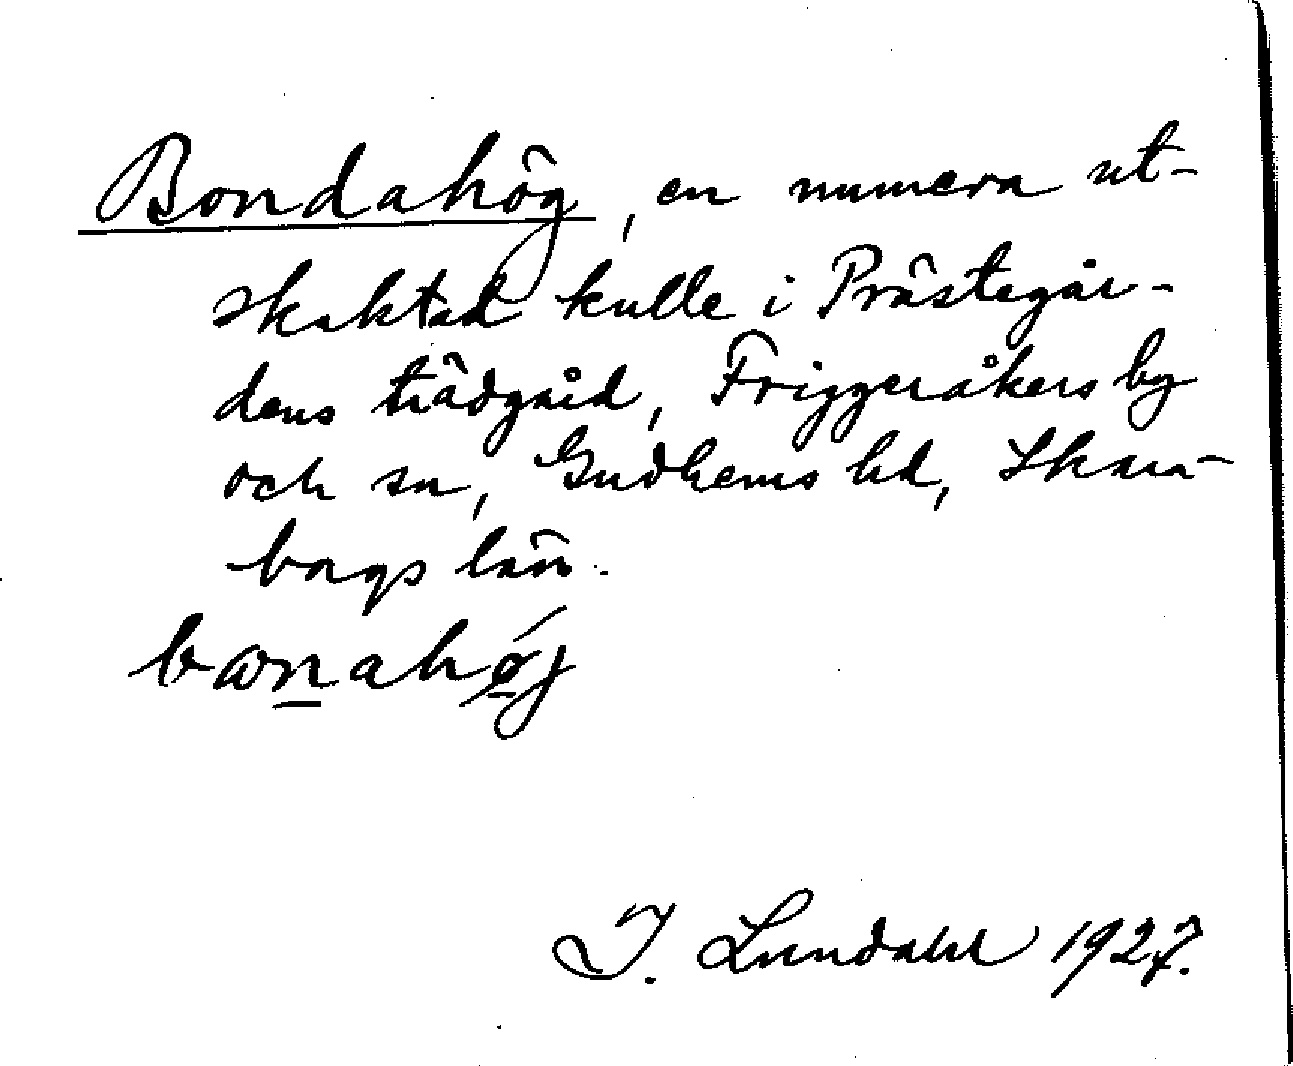 Bondahög, en numera ut-
skaktad kulle i Prästegår-
dens trädgård, Friggeråkers by
och sn, Gudhems hd, Skara-
borgs län.
bωn̲ahǿ̲j
I. Lundahl 1927.